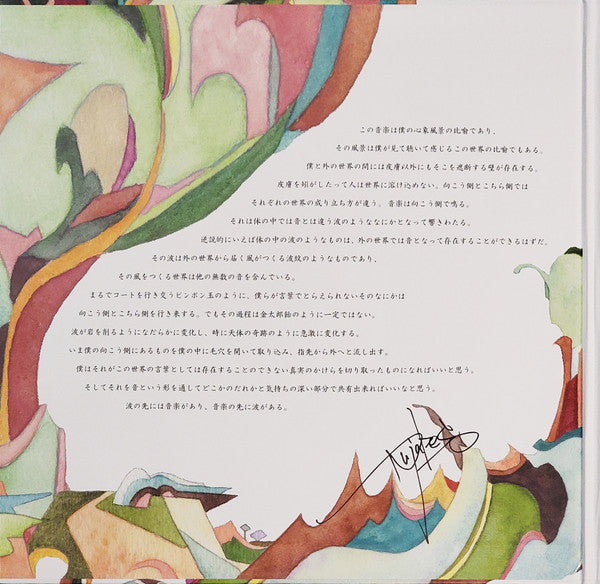 この音楽は僕の心象風景の比喩であり、
その風景は僕が見て聴いて感じるこの世界の比喩でもある。
僕と外の世界の間には皮膚以外にもそこを遮断する壁が存在する。
皮膚を頬がしたって人は世界に溶け込めない。向こう側とこちら側では
それぞれの世界の成り立ち方が違う。音楽は向こう側で鳴る。
それは体の中では音とは違う波のようななにかとなって響きわたる。
逆説的にいえば体の中の波のようなものは、外の世界では音となって存在することができるはずだ。
その波は外の世界から届く風がつくる波紋のようなものであり、
その風をつくる世界は他の無数の音を含んでいる。
まるでコートを行き交うピンポン玉のように、僕らが言葉でとらえられないそのなにかは
向こう側とこちら側を行き来する。でもその過程は金太郎飴のように一定ではない。
波が岩を削るようになだらかに変化し、時に天体の奇跡のように急激に変化する。
いま僕の向こう側にあるものを僕の中に毛穴を開いて取り込み、指先から外へと流し出す。
僕はそれがこの世界の言葉としては存在することのできない真実のかけらを切り取ったものになればいいと思う。
そしてそれを音という形を通してどこかのだれかと気持ちの深い部分で共有出来ればいいなと思う。
波の先には音楽があり、音楽の先に波がある。
Nujabes